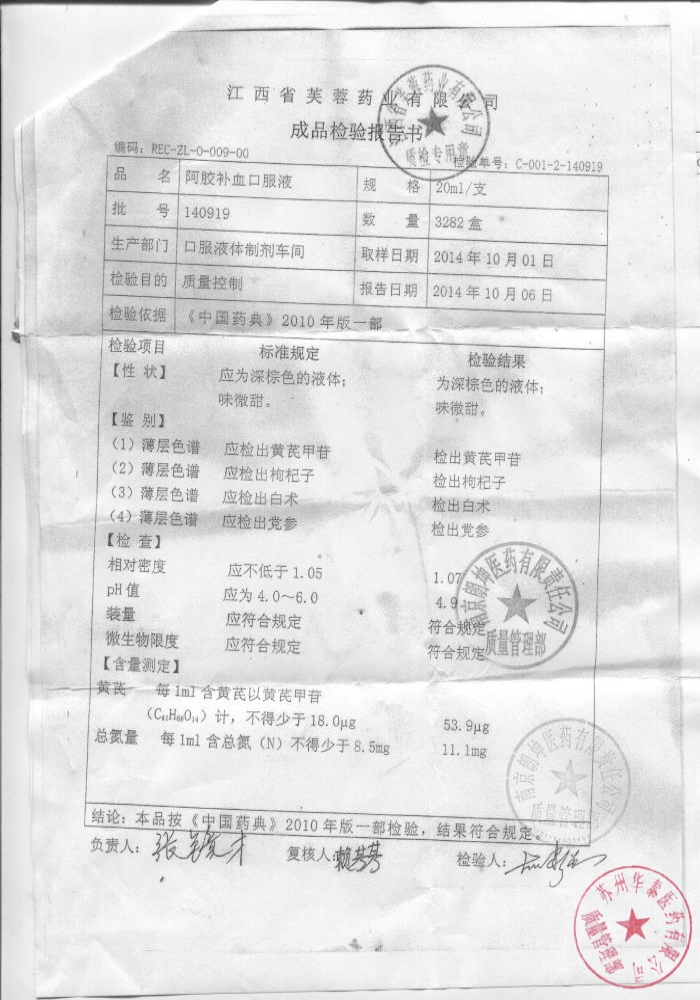 江西省芙蓉药业有限公司
成品检验报告书
编码：REC-ZL-O-009-00 检验单号：C-001-2-140919
品 名 阿胶补血口服液 规 格 20ml/支
批 号 140919 数 量 3282 盒
生产部门 口服液体制剂车间 取样日期 2014 年 10 月 01 日
检验目的 质量控制 报告日期 2014 年 10 月 06 日
检验依据 《中国药典》2010 年版一部
检验项目 标准规定 检验结果
【性 状】 应为深棕色的液体； 为深棕色的液体；
味微甜。 味微甜。
【鉴 别】
（1）薄层色谱 应检出黄芪甲苷 检出黄芪甲苷
（2）薄层色谱 应检出枸杞子 检出枸杞子
（3）薄层色谱 应检出白术 检出白术
（4）薄层色谱 应检出党参 检出党参
【检 查】
相对密度 应不低于 1.05 1.07
pH 值 应为 4.0～6.0 4.9
装量 应符合规定 符合规定
微生物限度 应符合规定 符合规定
【含量测定】
黄芪 每 1ml 含黄芪以黄芪甲苷
（C₄₁H₆₈O₁₄）计，不得少于 18.0μg 53.9μg
总氮量 每 1ml 含总氮（N）不得少于 8.5mg 11.1mg
结论：本品按《中国药典》2010 年版一部检验，结果符合规定。
负责人： 复核人： 检验人：
江西省芙蓉药业有限公司
质检专用章
南京朗坤医药有限责任公司
质量管理部
南京朗坤医药有限责任公司
质量管理部
苏州华泰医药有限公司
质量管理部